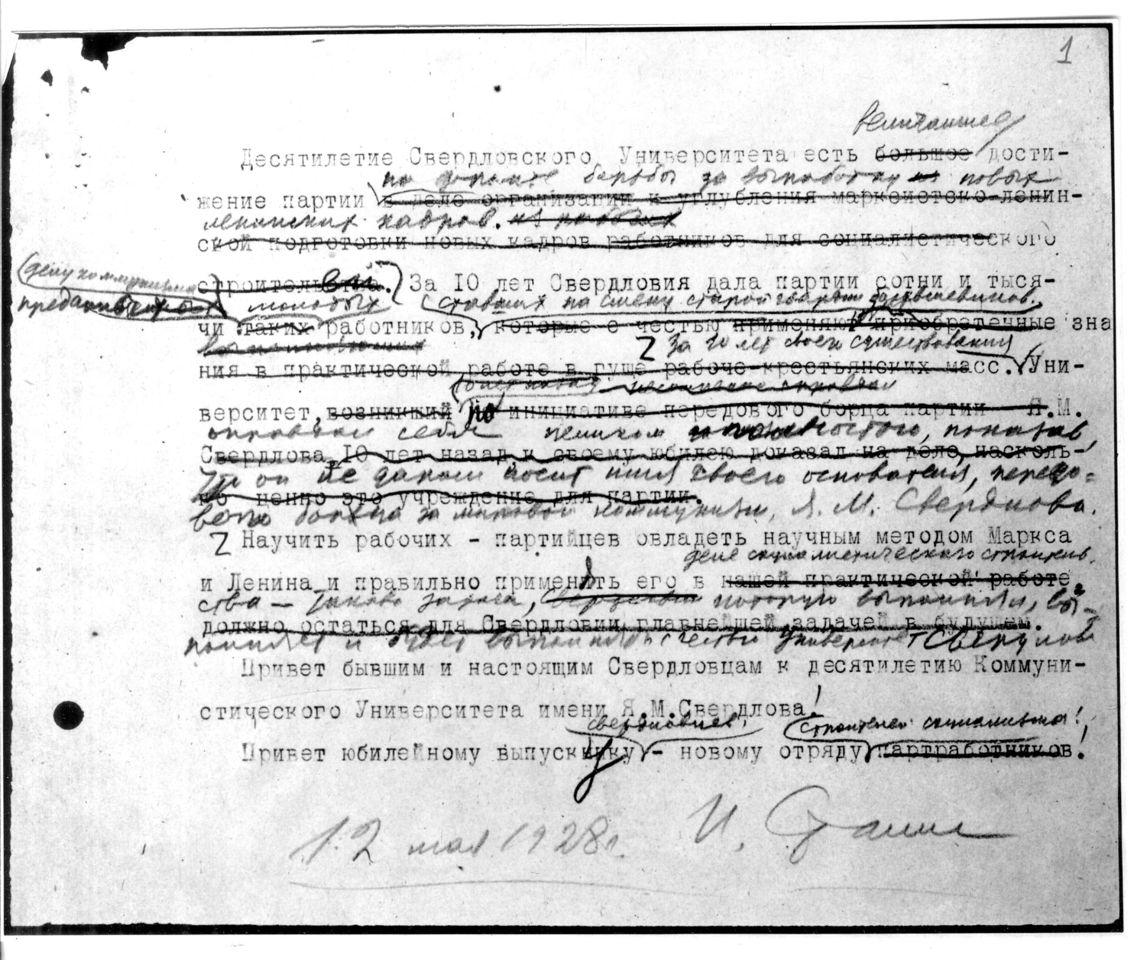 1
величайшее
Десятилетие Свердловского Университета есть большое дости-
на фронте борьбы за выработку новых
жение партии в деле организации и углубления марксистско-ленин-
ленинских кадров.
ской подготовки новых кадров работников для социалистического
делу коммунизма
строительства. За 10 лет Свердловия дала партии сотни и тыся-
преданных молодых ставших на смену старой гвардии большевиков.
чи таких работников, которые с честью применяют приобретенные зна
За 10 лет своего существования
ния в практической работе в гуще рабоче-крестьянских масс. Уни-
верситет, возникший по инициативе передового борца партии Я.М.
оправдал себя целиком и полностью, показав,
Свердлова 10 лет назад к своему юбилею доказал на деле, насколь-
что он не даром носит имя своего основателя, передо-
ко ценно это учреждение для партии.
вого борца за мировой коммунизм, Я. М. Свердлова.
Научить рабочих - партийцев овладеть научным методом Маркса
деле социалистического строитель-
и Ленина и правильно применять его в нашей практической работе
ства — такова задача, которую выполнял, вы-
должно остаться для Свердловии главнейшей задачей в будущем.
полняет и будет выполнять с честью университет Свердлова
Привет бывшим и настоящим Свердловцам к десятилетию Коммуни-
стического Университета имени Я.М.Свердлова!
свердловцев, строителей социализма!
Привет юбилейному выпуску - новому отряду партработников!
12 мая 1928г. И. Сталин